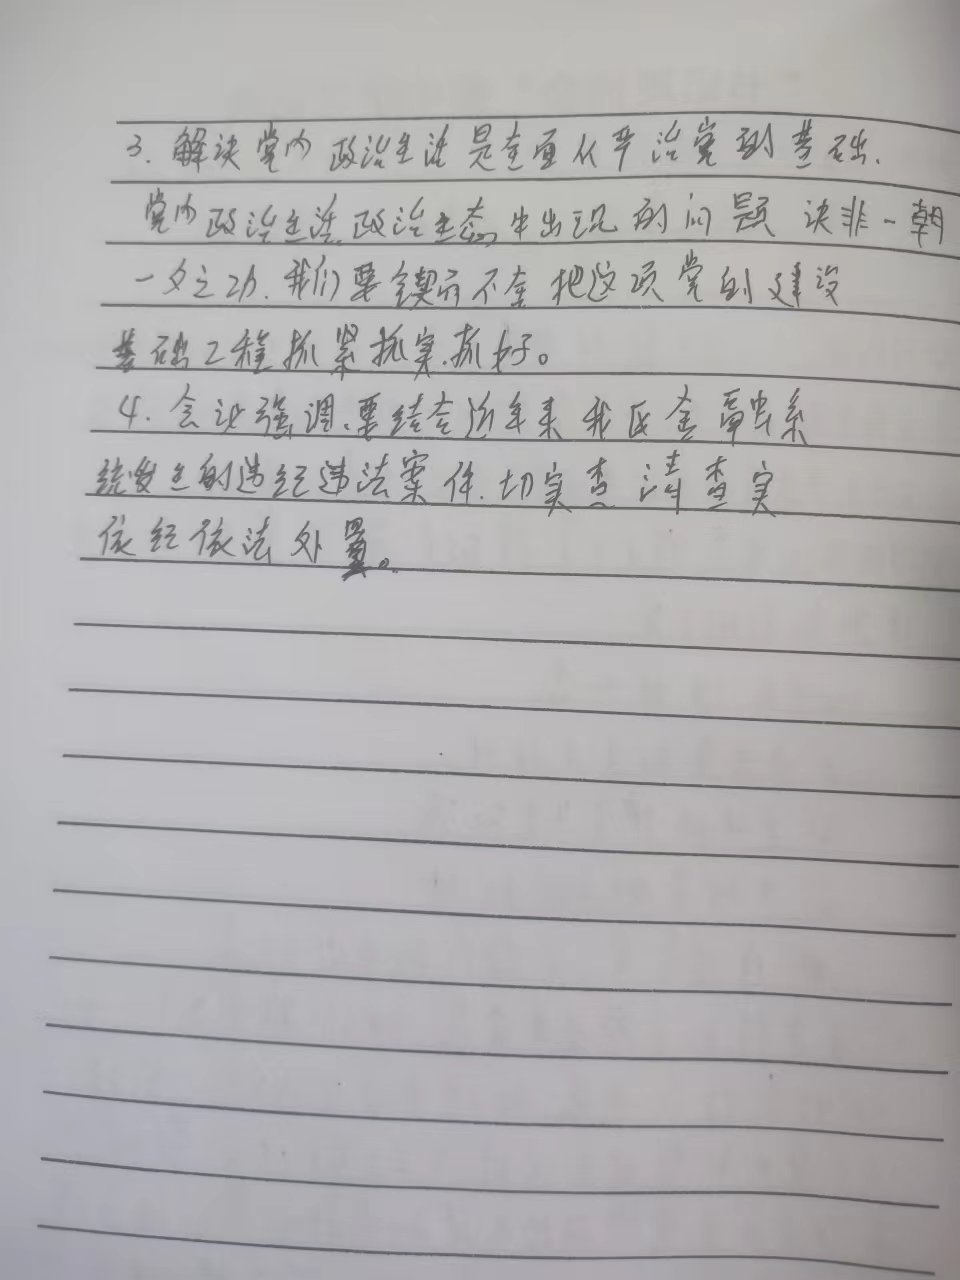 3. 解决党内政治生活是全面从严治党的基础.
党内政治生活、政治生态中出现的问题 决非一朝
一夕之功. 我们要锲而不舍把这项党的建设
基础工程抓紧抓实.抓好。
4. 会议强调、要结合近年来我区金融系
统发生的违纪违法案件.切实查清查实
依纪依法处置。